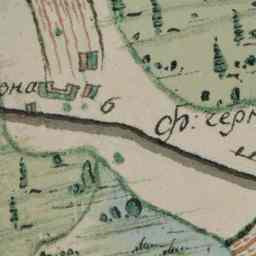 рна
6
ф: черн